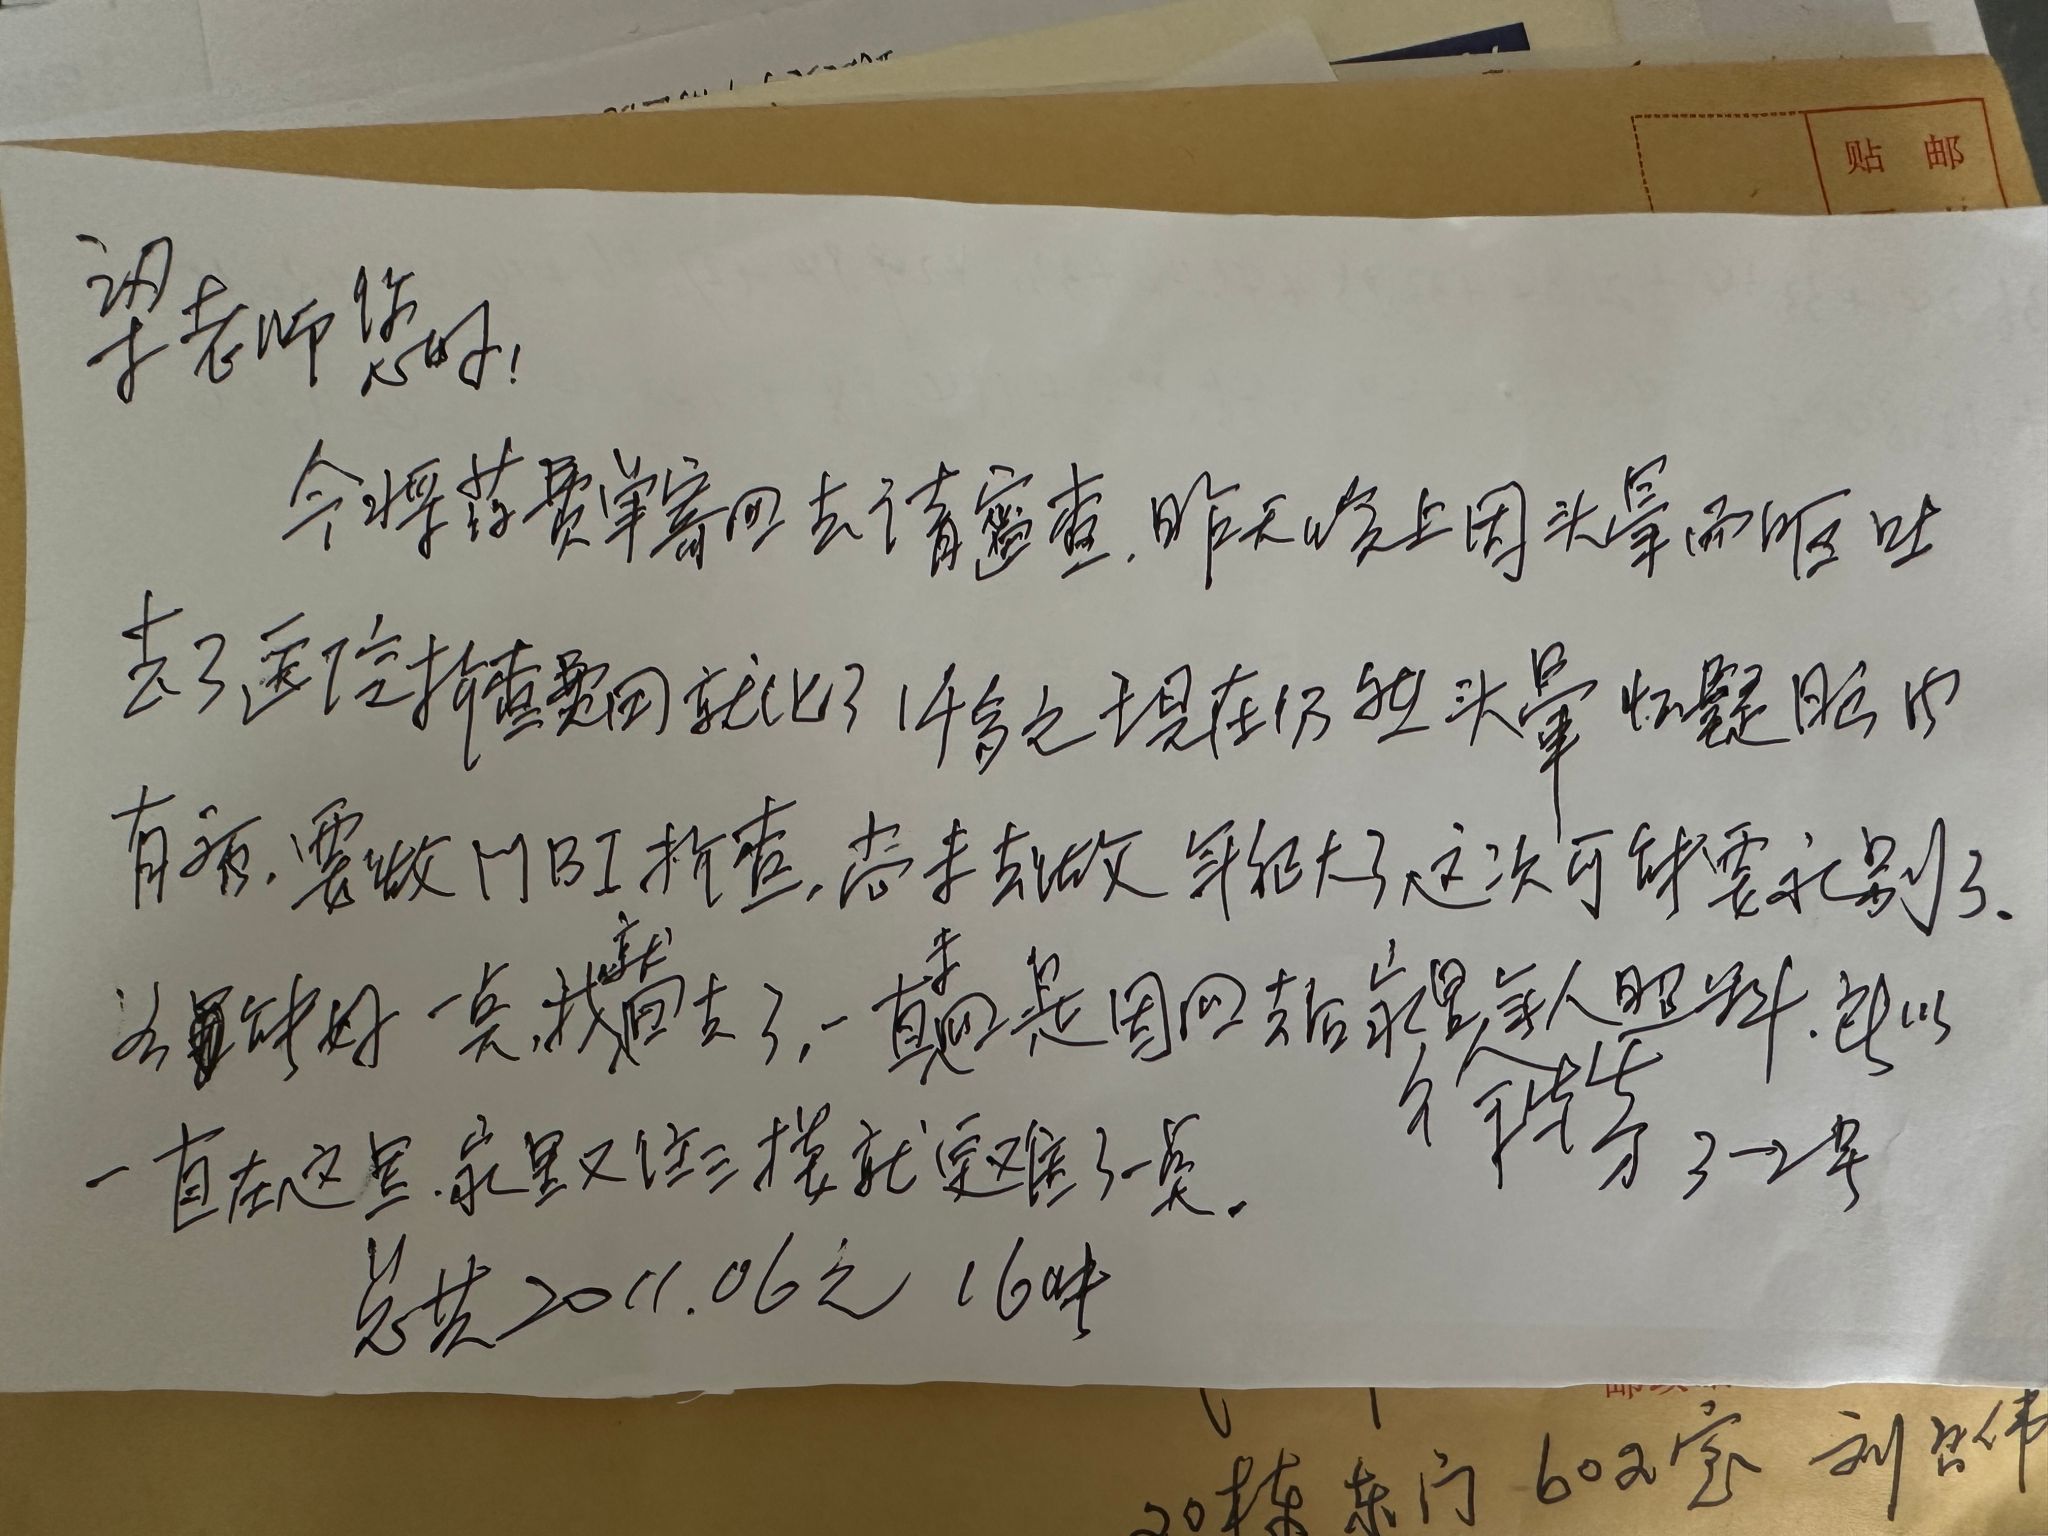 贴 邮
梁老师您好!
今将药费单寄回去请审查.昨天晚上因头晕而呕吐
去了医院检查费用就化了1千多元现在仍然头晕怀疑脑内
有病.要做MBI检查.尚未去做 年纪大了这次可能要永别了.
若能好一点,我就回去了,一直未回是因回去后家里无人照料.所以
一直在这里.家里又住三楼就更难了一点.
3→2号
总共2011.06元 16张
20栋东门602室 刘